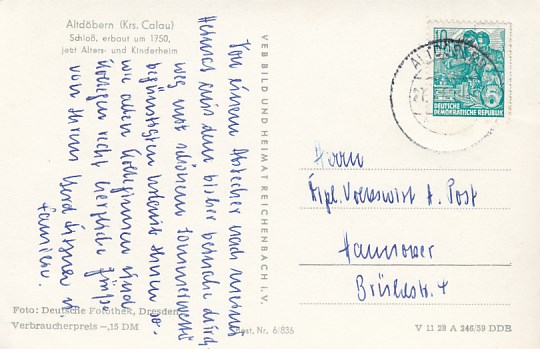 Altdöbern (Krs. Calau)
Schloß, erbaut um 1750,
jetzt Alters- und Kinderheim
Von einem Abstecher nach meiner
Heimat mit dem bisher beinahe durch-
weg mit schönem Sommerwetter
begünstigten sende ich Ihnen so-
wie allen Kolleginnen und
Kollegen recht herzliche Grüße
von Ihrem
Familie.
VEB BILD UND HEIMAT REICHENBACH I. V.
10
DEUTSCHE
DEMOKRATISCHE REPUBLIK
ALTDÖBERN
Herrn
Dipl. Volkswirt A. Post
Hannover
Brühlstr. 4
Foto: Deutsche Fotothek, Dresden
Verbraucherpreis -,15 DM
Best. Nr. 6/836
V 11 28 A 246/59 DDR